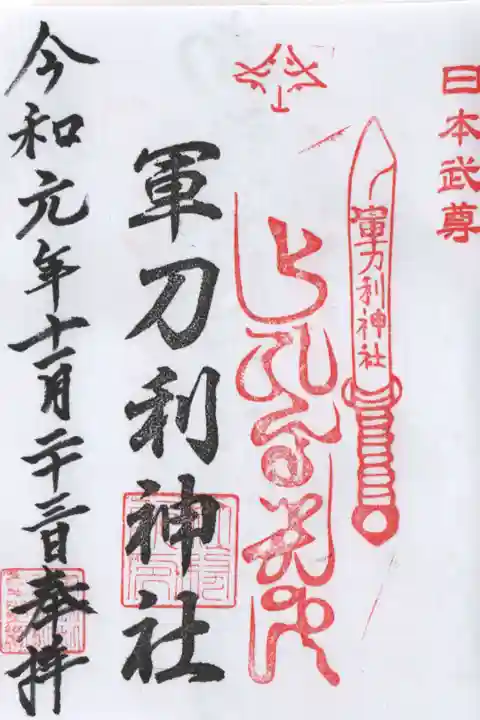 日本武尊
軍刀利神社
軍刀利神社
令和元年十一月二十三日奉拝